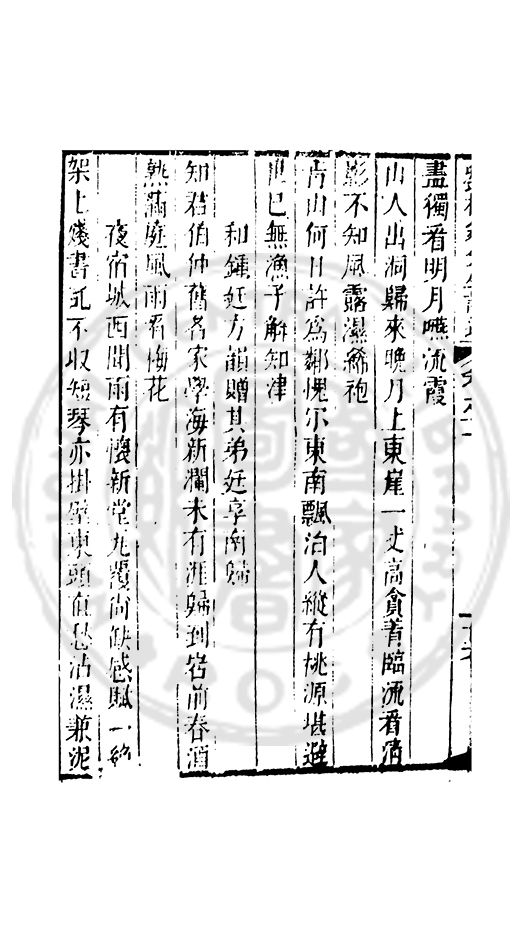 盡獨看明月嚥流霞
山人出洞歸來晚月上東崖一丈高貪着臨流看清
影不知風露濕絺袍
青山何日許爲鄰愧尔東南飄泊人縱有桃源堪避
世已無漁子解知津
和鍾廷方韻贈其弟廷享南歸
知君伯仲舊名家學海新瀾未有涯歸到岩前春酒
熟滿庭風雨看梅花
夜宿城西聞雨有懷新堂瓦覆尚缺感賦一絶
架上殘書乱不收短琴亦掛壁東頭 愁沾濕兼泥